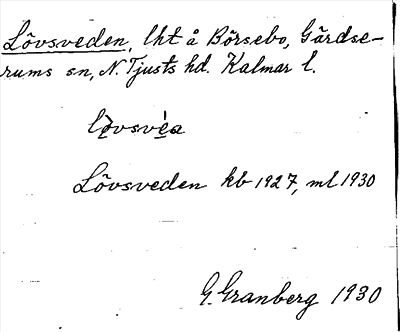 Lövsveden, lht å Börsebo, Gärdse-
rums sn, N. Tjusts hd. Kalmar l.
Lövsveden kb 1927, ml 1930
G. Granberg 1930